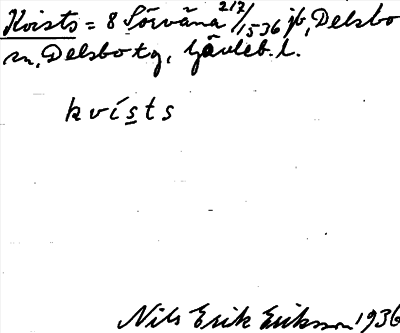 Kvists = 8 Sörvåna 217/1536 jb, Delsbo
sn, Delsbo tg, Gävleb. l.
kvísts
Nils Erik Eriksson 1936